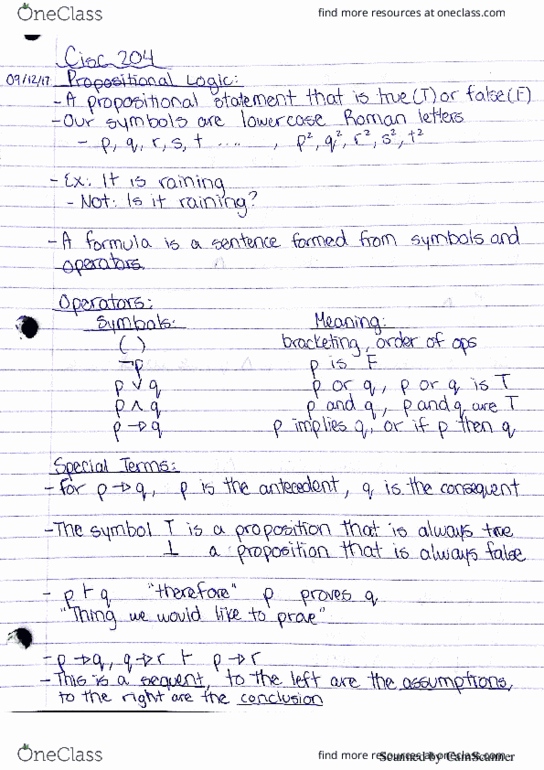 OneClass find more resources at oneclass.com
Cisc 204
09/12/17 Propositional Logic:
- A propositional statement that is true(T) or false(F)
- Our symbols are lowercase Roman letters
- p, q, r, s, t ..... , p², q², r², s², t²
- Ex: It is raining
- Not: Is it raining?
- A formula is a sentence formed from symbols and
operators.
Operators:
Symbols: Meaning:
( ) bracketing, order of ops
¬p p is F
p ∨ q p or q, p or q is T
p ∧ q p and q, p and q are T
p → q p implies q, or if p then q
Special Terms:
- For p → q, p is the antecedent, q is the consequent
- The symbol T is a proposition that is always true
⊥ a proposition that is always false
- p ⊢ q "therefore" p proves q
"Thing we would like to prove"
- p → q, q → r ⊢ p → r
- This is a sequent, to the left are the assumptions,
to the right are the conclusion
OneClass find more resources at oneclass.com
Scanned by CamScanner